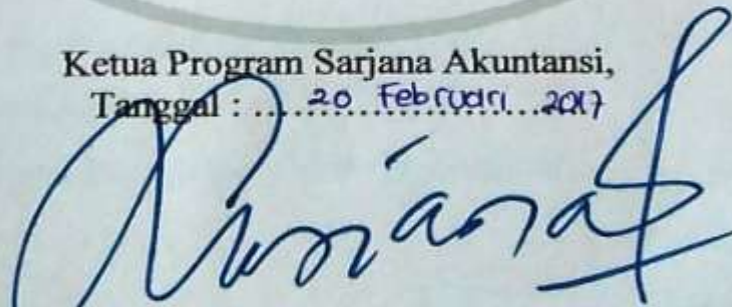 Ketua Program Sarjana Akuntansi,
Tanggal : .... 20 Februari 2017